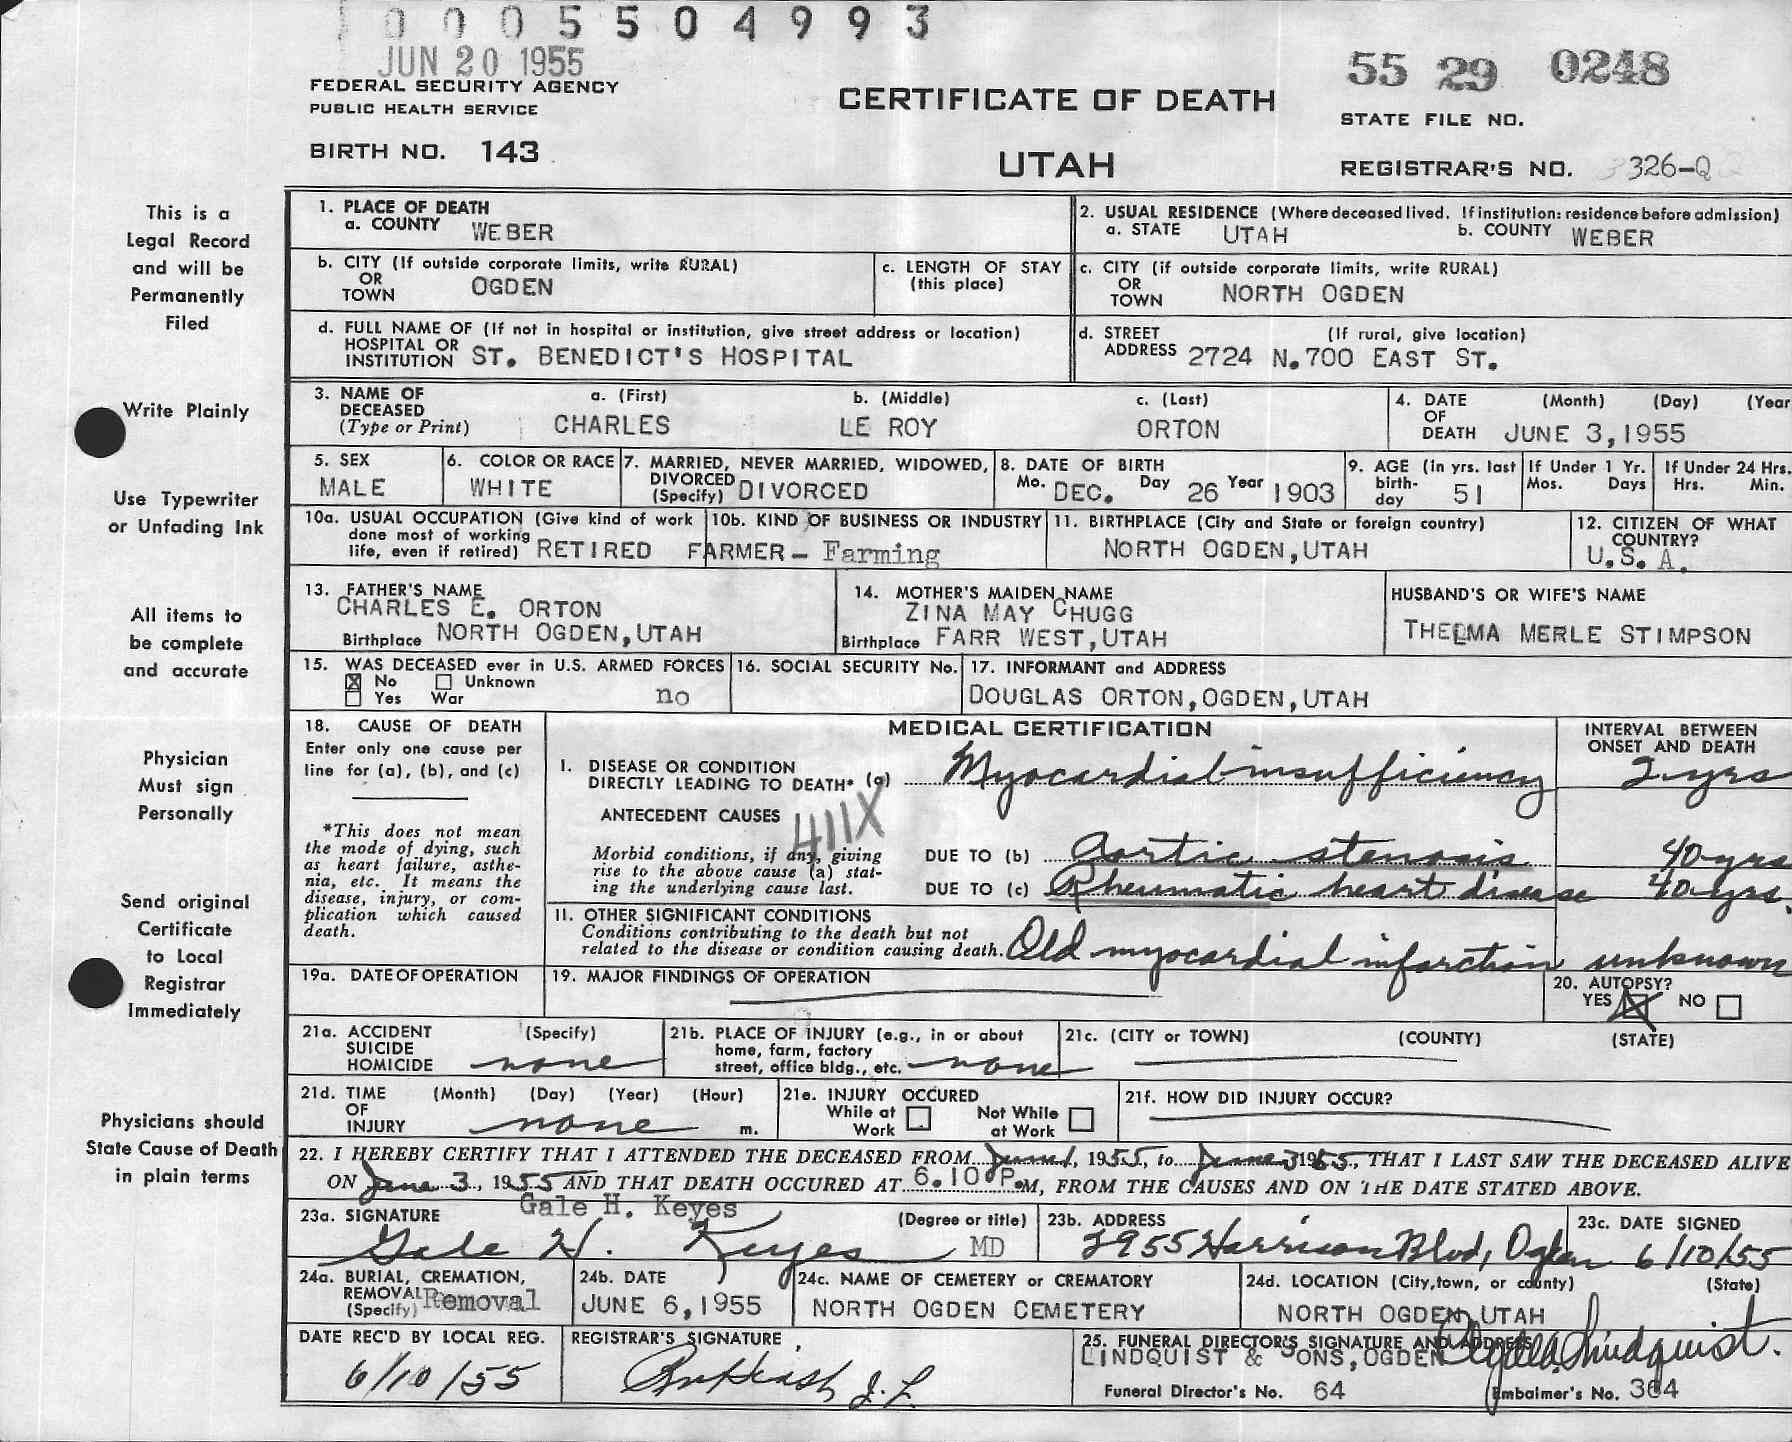 0005504993
JUN 20 1955
FEDERAL SECURITY AGENCY
PUBLIC HEALTH SERVICE
BIRTH NO. 143
CERTIFICATE OF DEATH
UTAH
55 29 0248
STATE FILE NO.
REGISTRAR'S NO. 326-Q
This is a
Legal Record
and will be
Permanently
Filed
Write Plainly
Use Typewriter
or Unfading Ink
All items to
be complete
and accurate
Physician
Must sign
Personally
Send original
Certificate
to Local
Registrar
Immediately
Physicians should
State Cause of Death
in plain terms
1. PLACE OF DEATH
a. COUNTY WEBER
2. USUAL RESIDENCE (Where deceased lived. If institution: residence before admission)
a. STATE UTAH b. COUNTY WEBER
b. CITY (If outside corporate limits, write RURAL)
OR
TOWN OGDEN
c. LENGTH OF STAY
(this place)
c. CITY (if outside corporate limits, write RURAL)
OR
TOWN NORTH OGDEN
d. FULL NAME OF (If not in hospital or institution, give street address or location)
HOSPITAL OR
INSTITUTION ST. BENEDICT'S HOSPITAL
d. STREET (If rural, give location)
ADDRESS 2724 N.700 EAST ST.
3. NAME OF a. (First) b. (Middle) c. (Last)
DECEASED
(Type or Print) CHARLES LE ROY ORTON
4. DATE (Month) (Day) (Year
OF
DEATH JUNE 3,1955
5. SEX
MALE
6. COLOR OR RACE
WHITE
7. MARRIED, NEVER MARRIED, WIDOWED,
DIVORCED
(Specify) DIVORCED
8. DATE OF BIRTH
Mo. DEC. Day 26 Year 1903
9. AGE (in yrs. last
birth-
day 51
If Under 1 Yr.
Mos. Days
If Under 24 Hrs.
Hrs. Min.
10a. USUAL OCCUPATION (Give kind of work
done most of working
life, even if retired) RETIRED FARMER - Farming
10b. KIND OF BUSINESS OR INDUSTRY
11. BIRTHPLACE (City and State or foreign country)
NORTH OGDEN,UTAH
12. CITIZEN OF WHAT
COUNTRY?
U.S.A.
13. FATHER'S NAME
CHARLES E. ORTON
Birthplace NORTH OGDEN,UTAH
14. MOTHER'S MAIDEN NAME
ZINA MAY CHUGG
Birthplace FARR WEST,UTAH
HUSBAND'S OR WIFE'S NAME
THELMA MERLE STIMPSON
15. WAS DECEASED ever in U.S. ARMED FORCES
☒ No ☐ Unknown
☐ Yes War no
16. SOCIAL SECURITY No.
17. INFORMANT and ADDRESS
DOUGLAS ORTON,OGDEN,UTAH
18. CAUSE OF DEATH
Enter only one cause per
line for (a), (b), and (c)
*This does not mean
the mode of dying, such
as heart failure, asthe-
nia, etc. It means the
disease, injury, or com-
plication which caused
death.
MEDICAL CERTIFICATION
INTERVAL BETWEEN
ONSET AND DEATH
I. DISEASE OR CONDITION
DIRECTLY LEADING TO DEATH* (a) Myocardial insufficiency 2 yrs
ANTECEDENT CAUSES
411X
Morbid conditions, if any, giving
rise to the above cause (a) stat-
ing the underlying cause last.
DUE TO (b) Aortic stenosis 40 yrs
DUE TO (c) Rheumatic heart disease 40 yrs.
II. OTHER SIGNIFICANT CONDITIONS
Conditions contributing to the death but not
related to the disease or condition causing death. Old myocardial infarction unknown
19a. DATE OF OPERATION
19. MAJOR FINDINGS OF OPERATION
20. AUTOPSY?
YES ☒ NO ☐
21a. ACCIDENT (Specify)
SUICIDE
HOMICIDE none
21b. PLACE OF INJURY (e.g., in or about
home, farm, factory
street, office bldg., etc. none
21c. (CITY or TOWN) (COUNTY) (STATE)
21d. TIME (Month) (Day) (Year) (Hour)
OF
INJURY none m.
21e. INJURY OCCURED
While at Work ☐ Not While at Work ☐
21f. HOW DID INJURY OCCUR?
22. I HEREBY CERTIFY THAT I ATTENDED THE DECEASED FROM June 1, 1955, to June 3 1955, THAT I LAST SAW THE DECEASED ALIVE
ON June 3, 1955 AND THAT DEATH OCCURED AT 6.10 P.M, FROM THE CAUSES AND ON THE DATE STATED ABOVE.
Gale H. Keyes
23a. SIGNATURE (Degree or title)
Gale H. Keyes MD
23b. ADDRESS
2955 Harrison Blvd, Ogden
23c. DATE SIGNED
6/10/55
24a. BURIAL, CREMATION,
REMOVAL
(Specify) Removal
24b. DATE
JUNE 6,1955
24c. NAME OF CEMETERY or CREMATORY
NORTH OGDEN CEMETERY
24d. LOCATION (City,town, or county) (State)
NORTH OGDEN,UTAH
DATE REC'D BY LOCAL REG.
6/10/55
REGISTRAR'S SIGNATURE
25. FUNERAL DIRECTOR'S SIGNATURE AND ADDRESS
LINDQUIST & SONS,OGDEN Lindquist.
Funeral Director's No. 64 Embalmer's No. 364